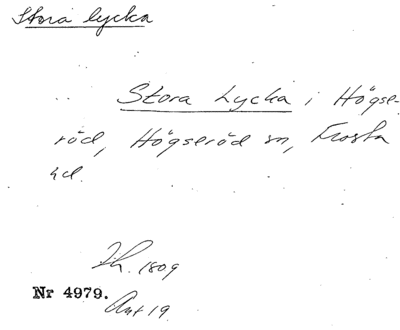 Stora lycka
Stora Lycka i Högse-
röd, Högseröd sn, Frosta
hd.
Th. 1809
Nr 4979.
Ant 19